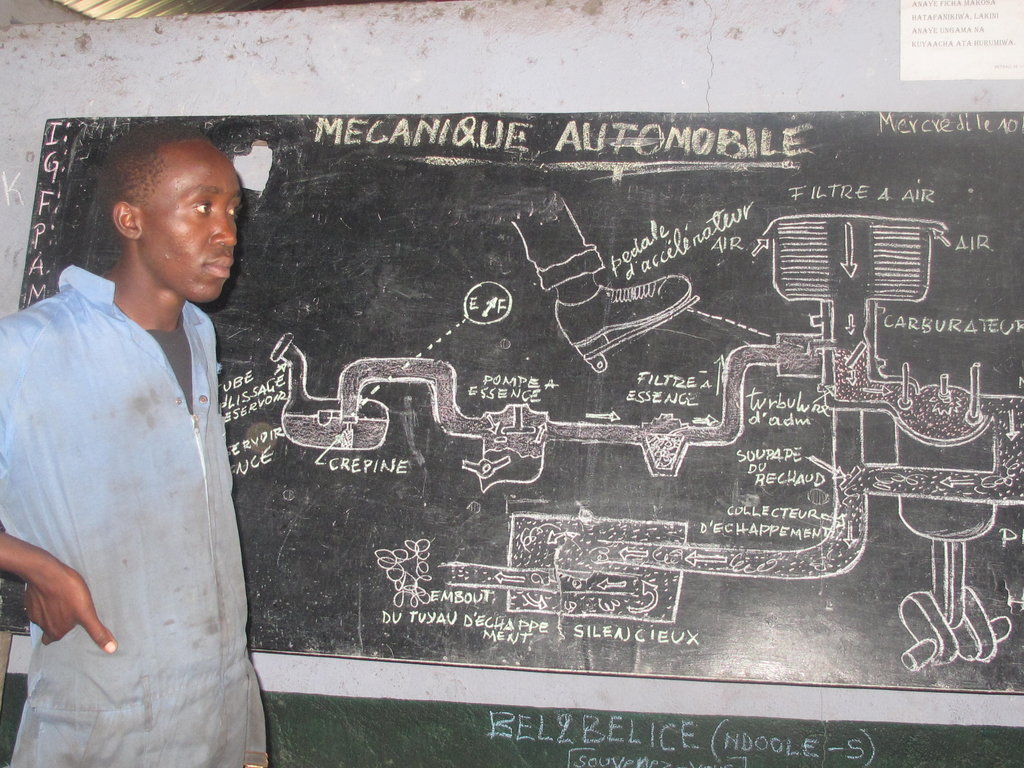 ANAYE FICHA MAKOSA
HATAFANIKIWA, LAKINI
ANAYE UNGAMA NA
KUYAACHA ATA-HURUMIWA.
I.G.F.P.A.M
MECANIQUE AUTOMOBILE
Mercredi le 10
K
FILTRE A AIR
AIR
AIR
pedale
d'accélérateur
E F
CARBURATEUR
POMPE A
ESSENCE
FILTRE A
ESSENCE
turbulure
d'adm
CREPINE
SOUPAPE
DU
RECHAUD
COLLECTEUR
D'ECHAPPEMENT
EMBOUT
DU TUYAU D'ECHAPPE
MENT
SILENCIEUX
BEL2BELICE (NDOOLE-S)
SOUVENEZ-VOUS